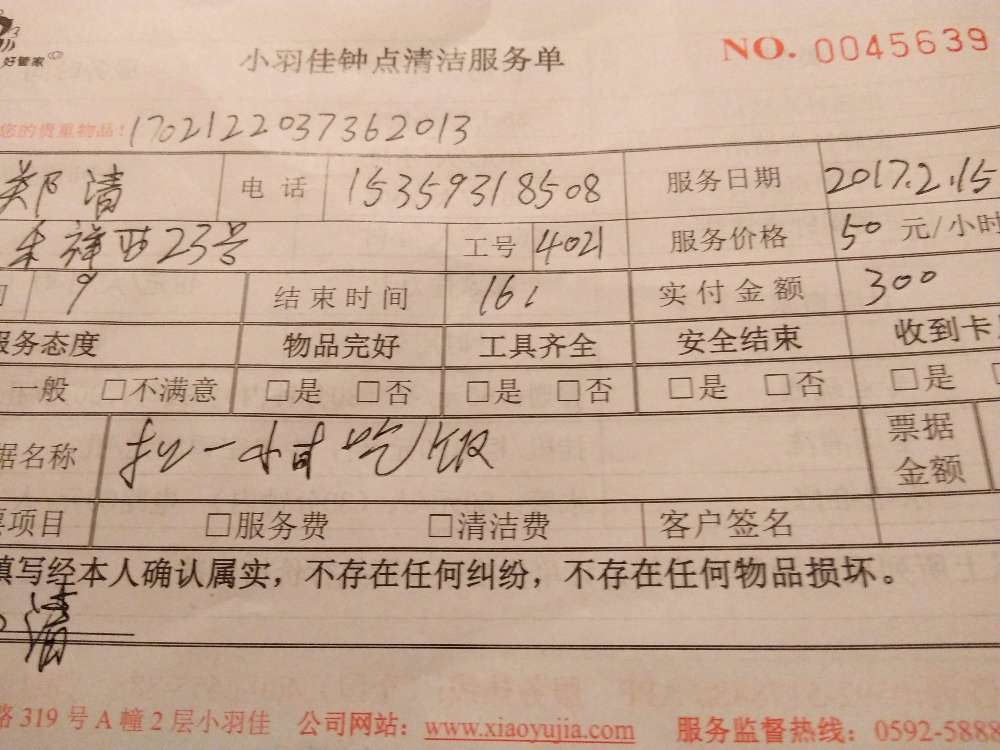 好管家
小羽佳钟点清洁服务单 NO. 0045639
您的贵重物品! 1702122037362013
郑清 电话 15359318508 服务日期 2017.2.15
23号 工号 4021 服务价格 50 元/小时
9 结束时间 16 实付金额 300
服务态度 物品完好 工具齐全 安全结束 收到卡
一般 □不满意 □是 □否 □是 □否 □是 □否 □是
据名称 扣一小时吃饭 票据金额
项目 □服务费 □清洁费 客户签名
填写经本人确认属实，不存在任何纠纷，不存在任何物品损坏。
清
路 319 号 A 幢 2 层小羽佳 公司网站：www.xiaoyujia.com 服务监督热线：0592-5888